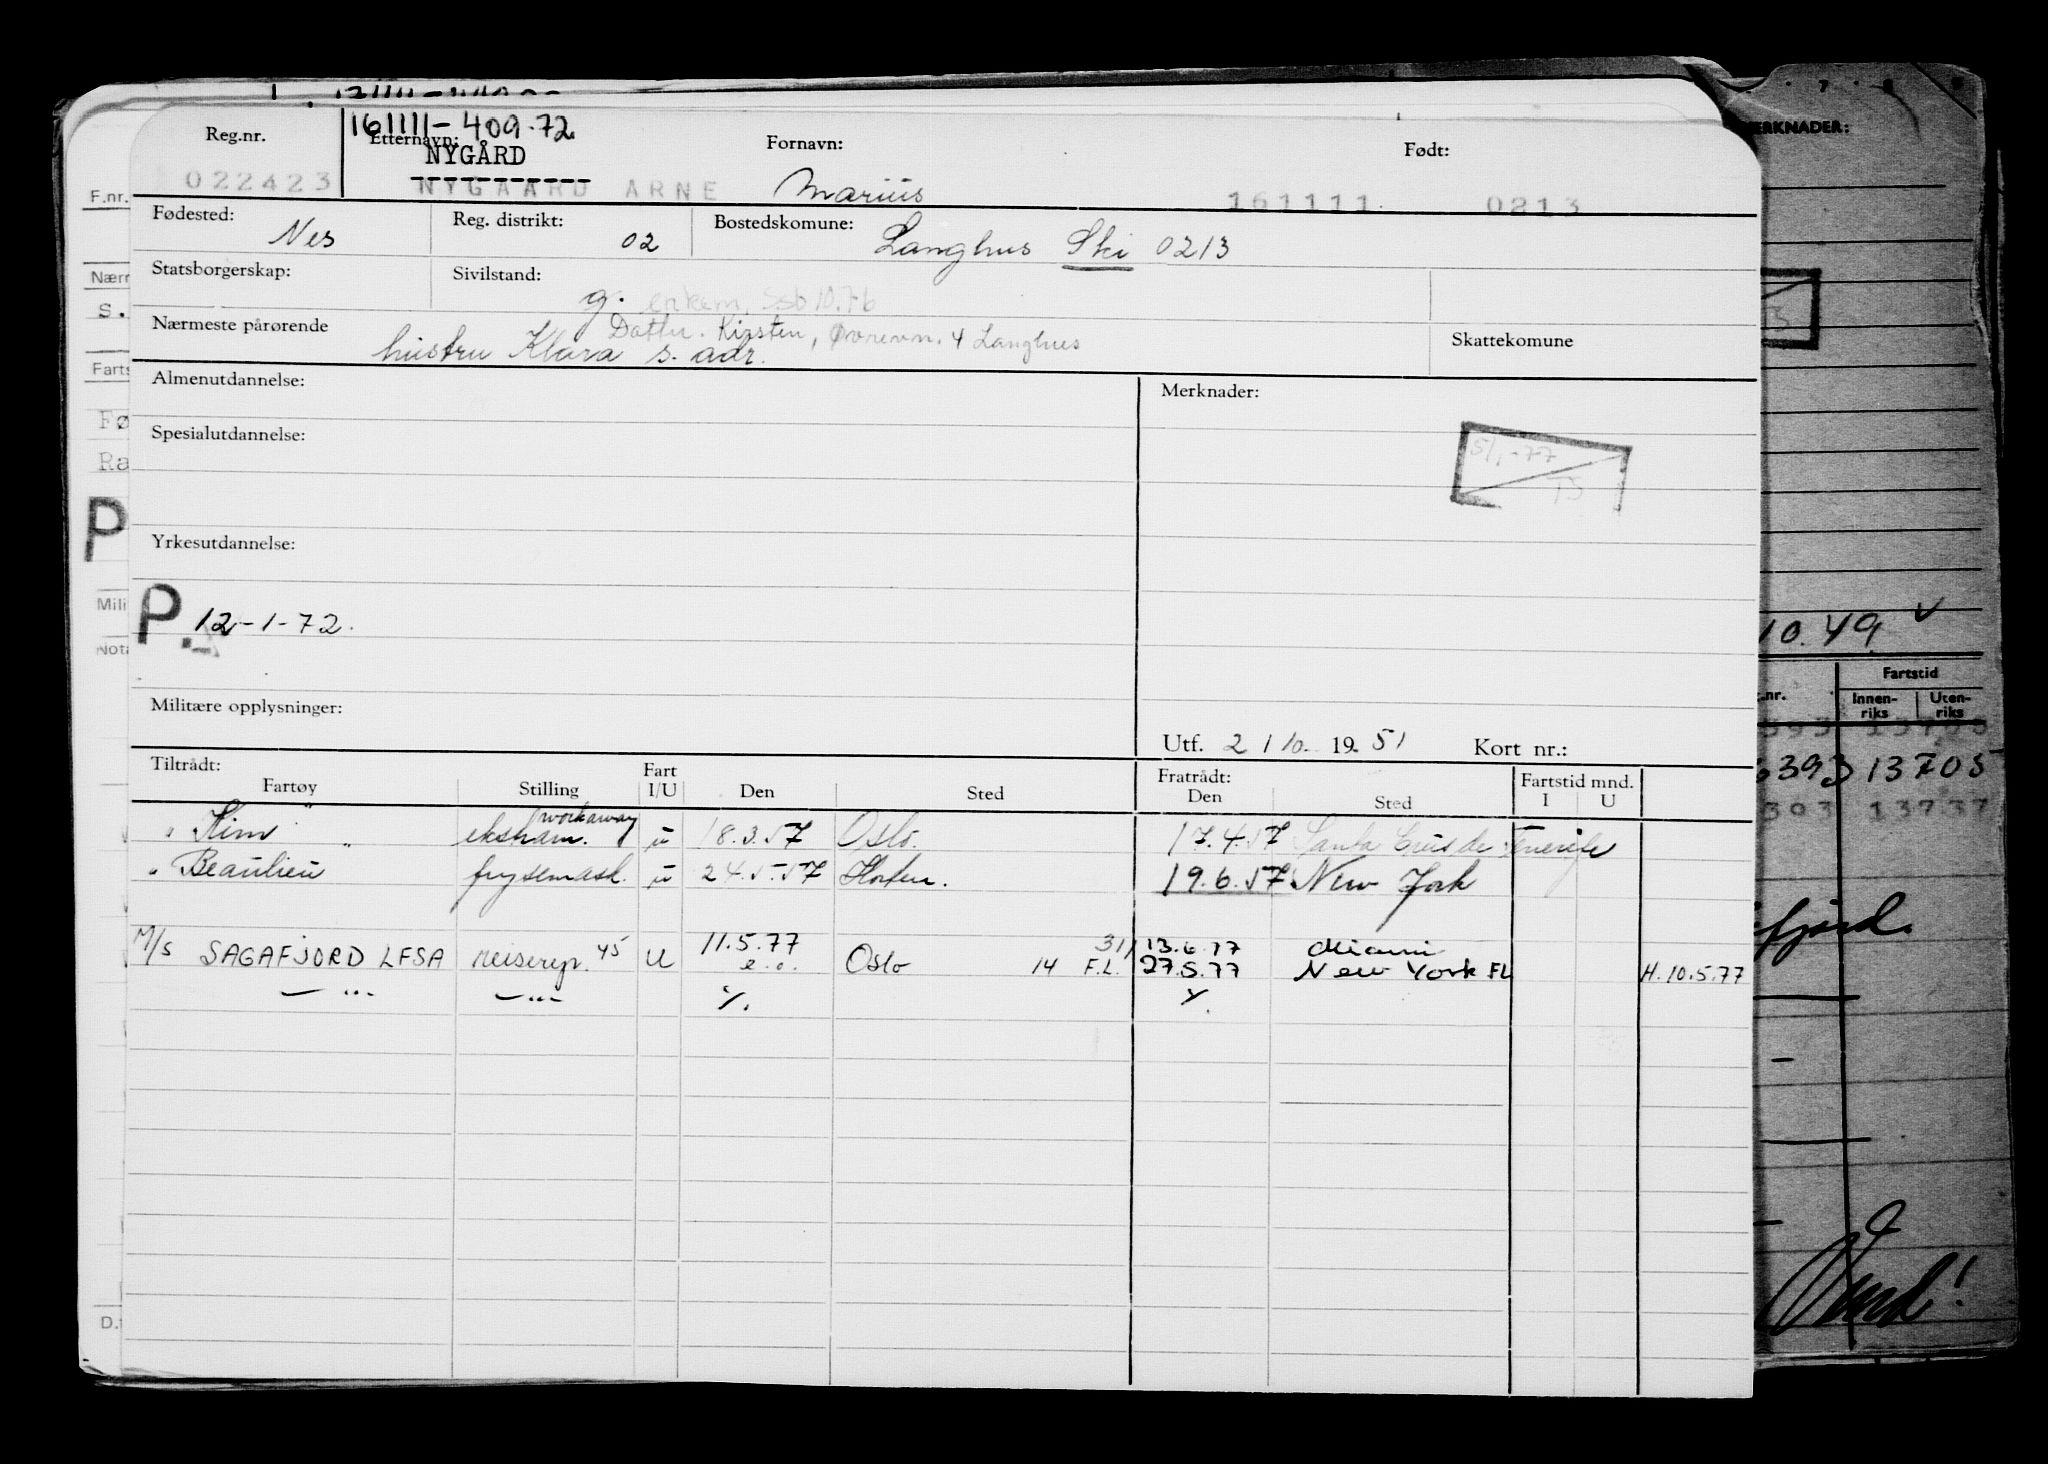 161111-409.72
Reg.nr. Etternavn: Fornavn: Født:
NYGÅRD
022423 NYGAARD ARNE Marius 161111 0213
Fødested: Nes Reg. distrikt: 02 Bostedskomune: Langhus Ski 0213
Statsborgerskap: Sivilstand: g. enkem. SSb 10.76
Nærmeste pårørende Datter. Kirsten, 4 Langhus
hustru Klara s. adr. Skattekomune
Almenutdannelse: Merknader:
Spesialutdannelse:
5/1-77
Yrkesutdannelse:
P. 12-1-72.
Militære opplysninger:
Utf. 2/10. 19.51 Kort nr.:
Tiltrådt: Fratrådt:
Fartøy Stilling Fart I/U Den Sted Den Sted Fartstid mnd. I U
" Kim " eksham. (workaway u 18.3.57 Oslo. 17.4.57 Santa Cruis de Tenerife
" Beaulieu " frysemask. u 24.5.57 Horten. 19.6.57 New York
M/S SAGAFJORD LFSA reiserep. 45 U 11.5.77 e.o. Oslo 31/ 13.6.77 Miami
14 F.L. 27.5.77 New York FL H. 10.5.77
— " — — " — ٪. ٪.
F.nr.
Nærm
S.
Farts
Fø
Ra
P
Mili
Nota
D.
MERKNADER:
10.49 v
.nr. Fartstid
Innenriks Utenriks
393 13705
6393 13705
393 13737
fjord.